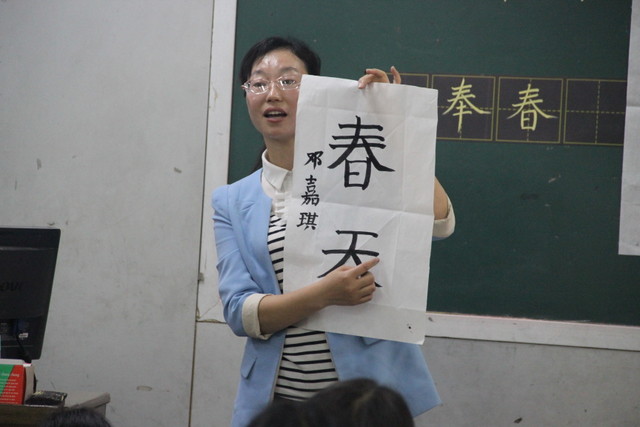 春天
邓嘉琪
奉春